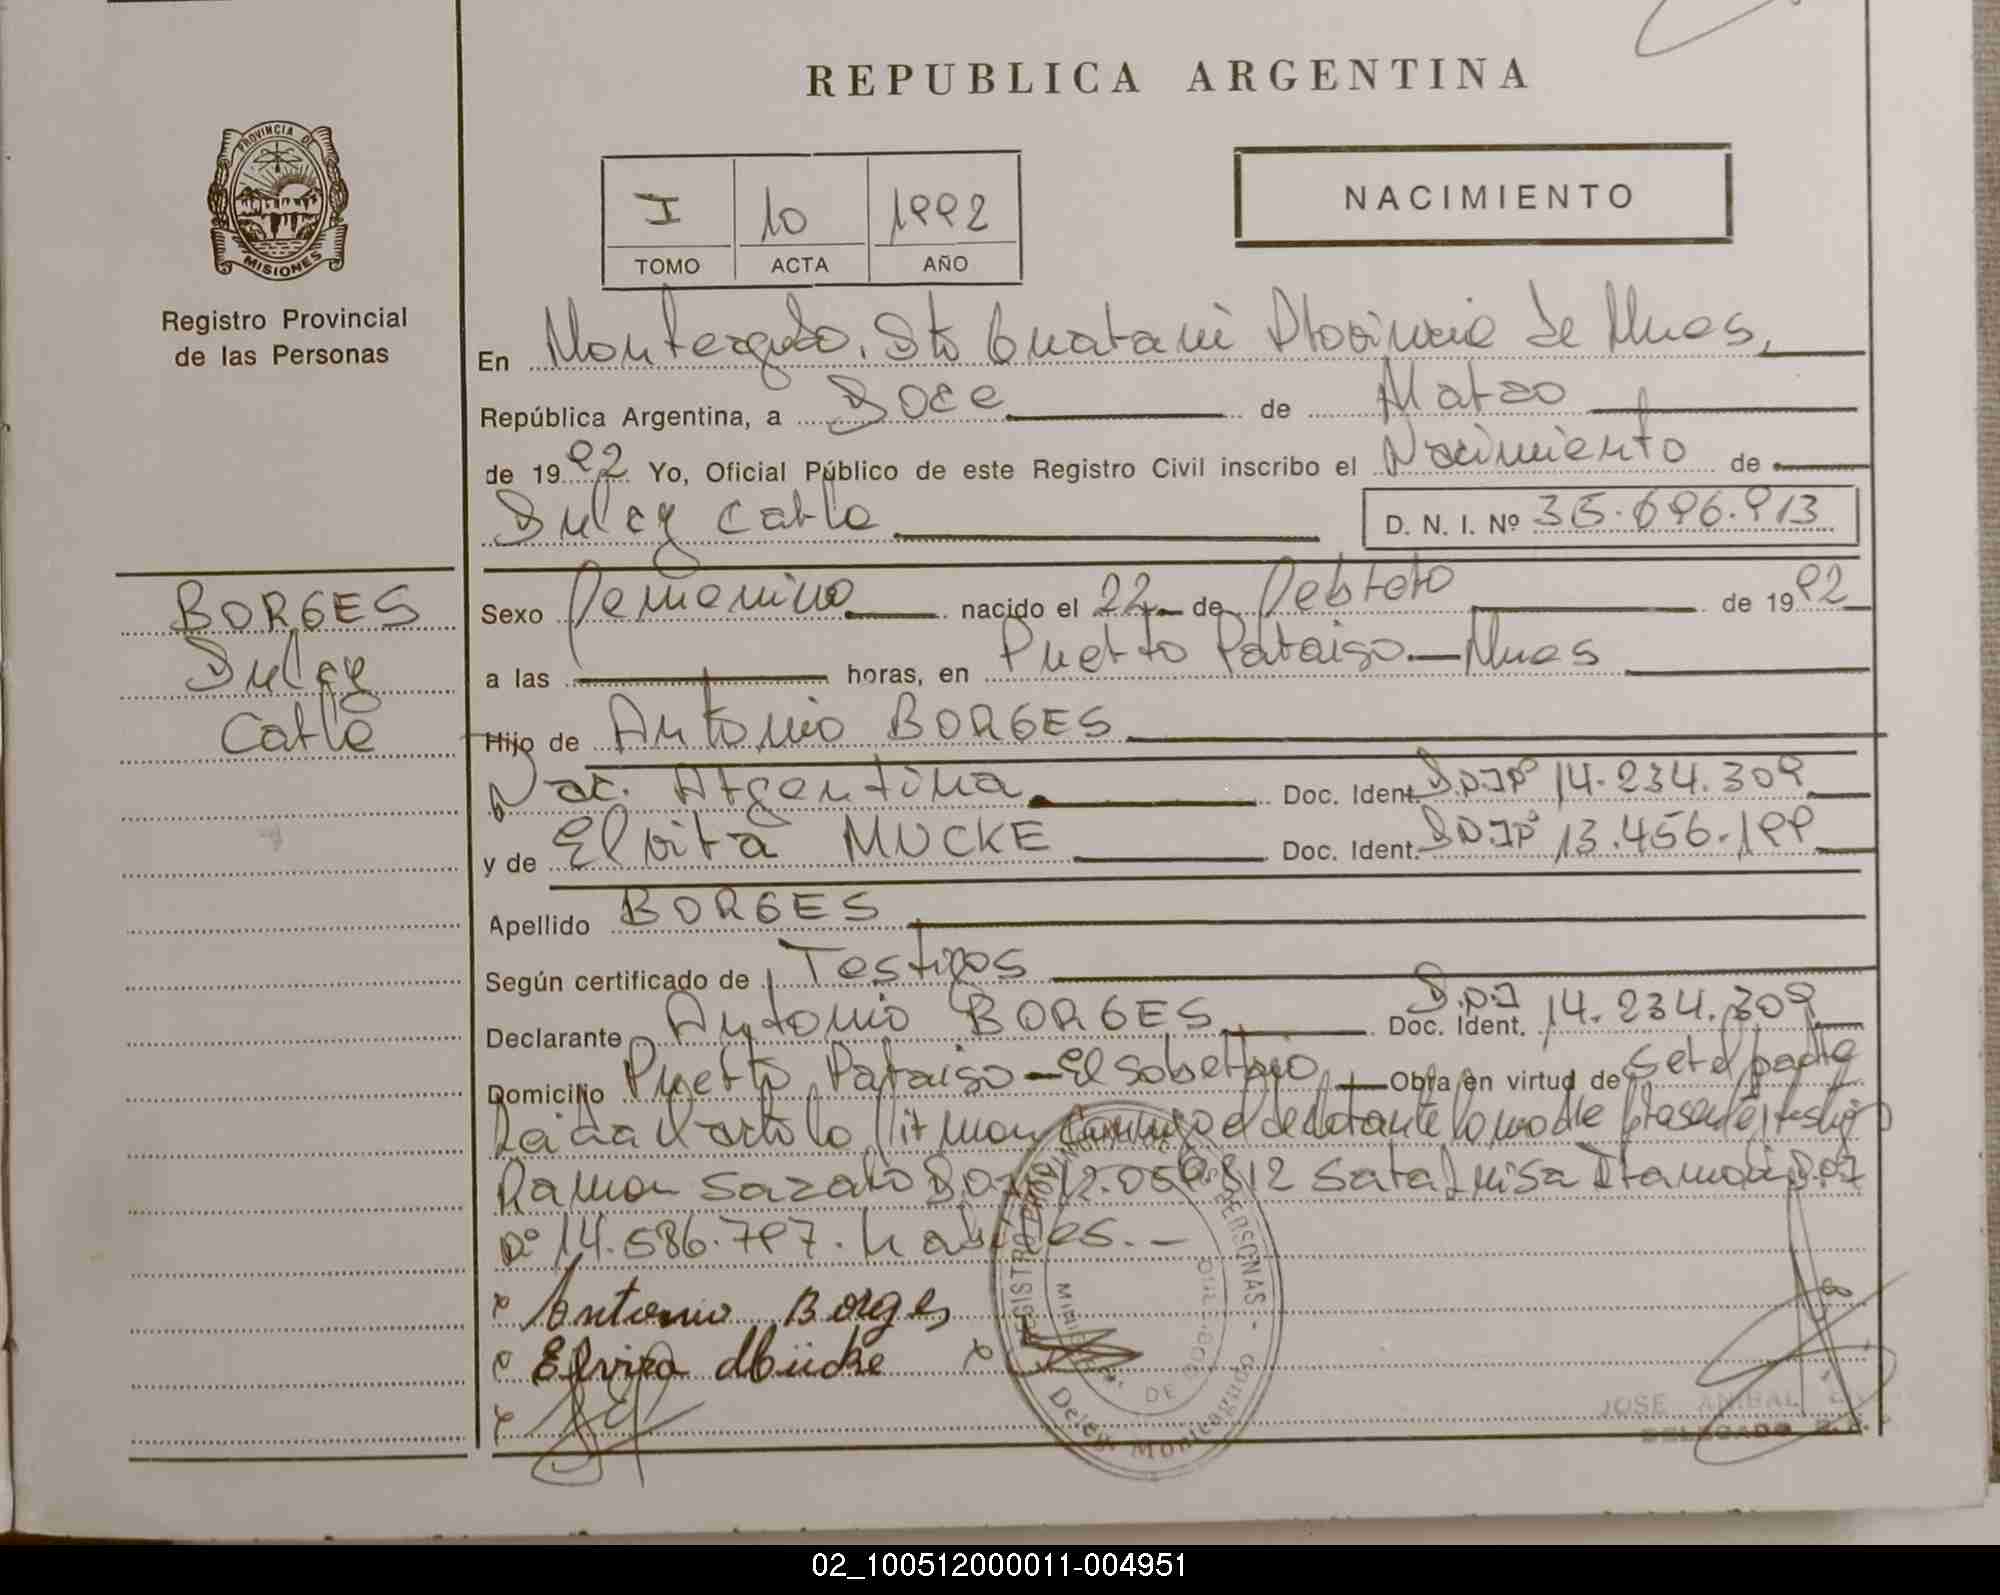 REPUBLICA ARGENTINA
PROVINCIA DE
MISIONES
Registro Provincial
de las Personas
I 10 1992
TOMO ACTA AÑO
NACIMIENTO
En Monteagudo, Dto Guarani Provincia de Mnes,
República Argentina, a Doce de Marzo
de 1992 Yo, Oficial Público de este Registro Civil inscribo el Nacimiento de
Dulcy Carla
D. N. I. Nº 36.696.913
BORGES
Dulcy
Carla
Sexo Femenino nacido el 22 de Febrero de 1992
a las horas, en Puerto Paraiso - Mnes
Hijo de Antonio BORGES
Nac. Argentina Doc. Ident. D.N.I Nº 14.234.309
y de Elvira MUCKE Doc. Ident. D.N.I Nº 13.456.199
Apellido BORGES
Según certificado de Testigos
Declarante Antonio BORGES Doc. Ident. D.N.I 14.234.309
Domicilio Puerto Paraiso - El soberbio Obra en virtud de ser el padre
firman conmigo el declarante la madre presente, testigos
Ramon D.N.I Luisa D.N.I
Nº 14.586.797. habiles. -
x Antonio Borges
x Elvira Mücke x
x
REGISTRO PROVINCIAL DE LAS PERSONAS
Deleg. Monteagudo
JOSE ANIBAL
DELEGADO
02_100512000011-004951